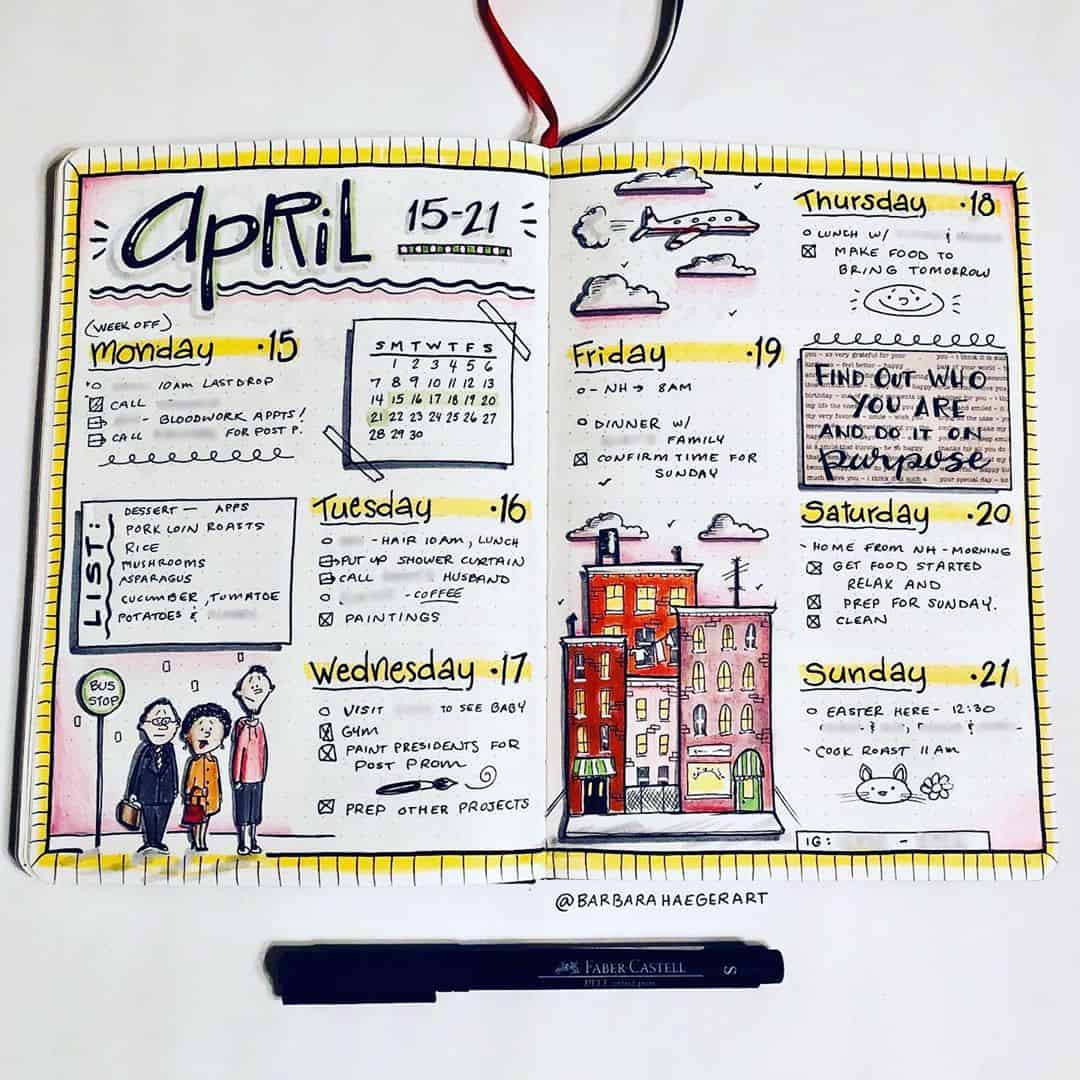 APRIL 15-21
(WEEK OFF)
Monday •15
10AM LAST DROP
CALL
- BLOODWORK APPTS!
CALL FOR POST P.
S M T W T F S
1 2 3 4 5 6
7 8 9 10 11 12 13
14 15 16 17 18 19 20
21 22 23 24 25 26 27
28 29 30
LIST:
DESSERT — APPS
PORK LOIN ROASTS
RICE
MUSHROOMS
ASPARAGUS
CUCUMBER, TOMATOE
POTATOES &
Tuesday •16
- HAIR 10AM, LUNCH
PUT UP SHOWER CURTAIN
CALL HUSBAND
- COFFEE
PAINTINGS
Wednesday •17
VISIT TO SEE BABY
GYM
PAINT PRESIDENTS FOR
POST PROM
PREP OTHER PROJECTS
BUS
STOP
Thursday •18
LUNCH W/ &
MAKE FOOD TO
BRING TOMORROW
Friday •19
- NH → 8AM
DINNER W/
FAMILY
CONFIRM TIME FOR
SUNDAY
FIND OUT WHO
YOU ARE
AND DO IT ON
purpose
Saturday •20
- HOME FROM NH - MORNING
GET FOOD STARTED
RELAX AND
PREP FOR SUNDAY.
CLEAN
Sunday •21
EASTER HERE - 12:30
- COOK ROAST 11AM
IG: -
@BARBARAHAEGERART
FABER-CASTELL
PITT artist pen
S